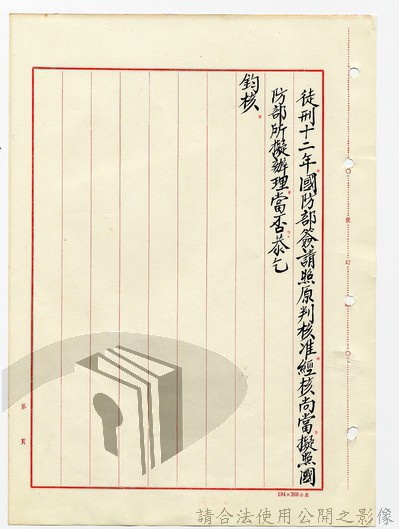 徒刑十二年國防部簽請照原判核准經核尚當擬照國
防部所擬辦理當否恭乞
鈞核
裝訂
第 頁
194×268公厘
請合法使用公開之影像